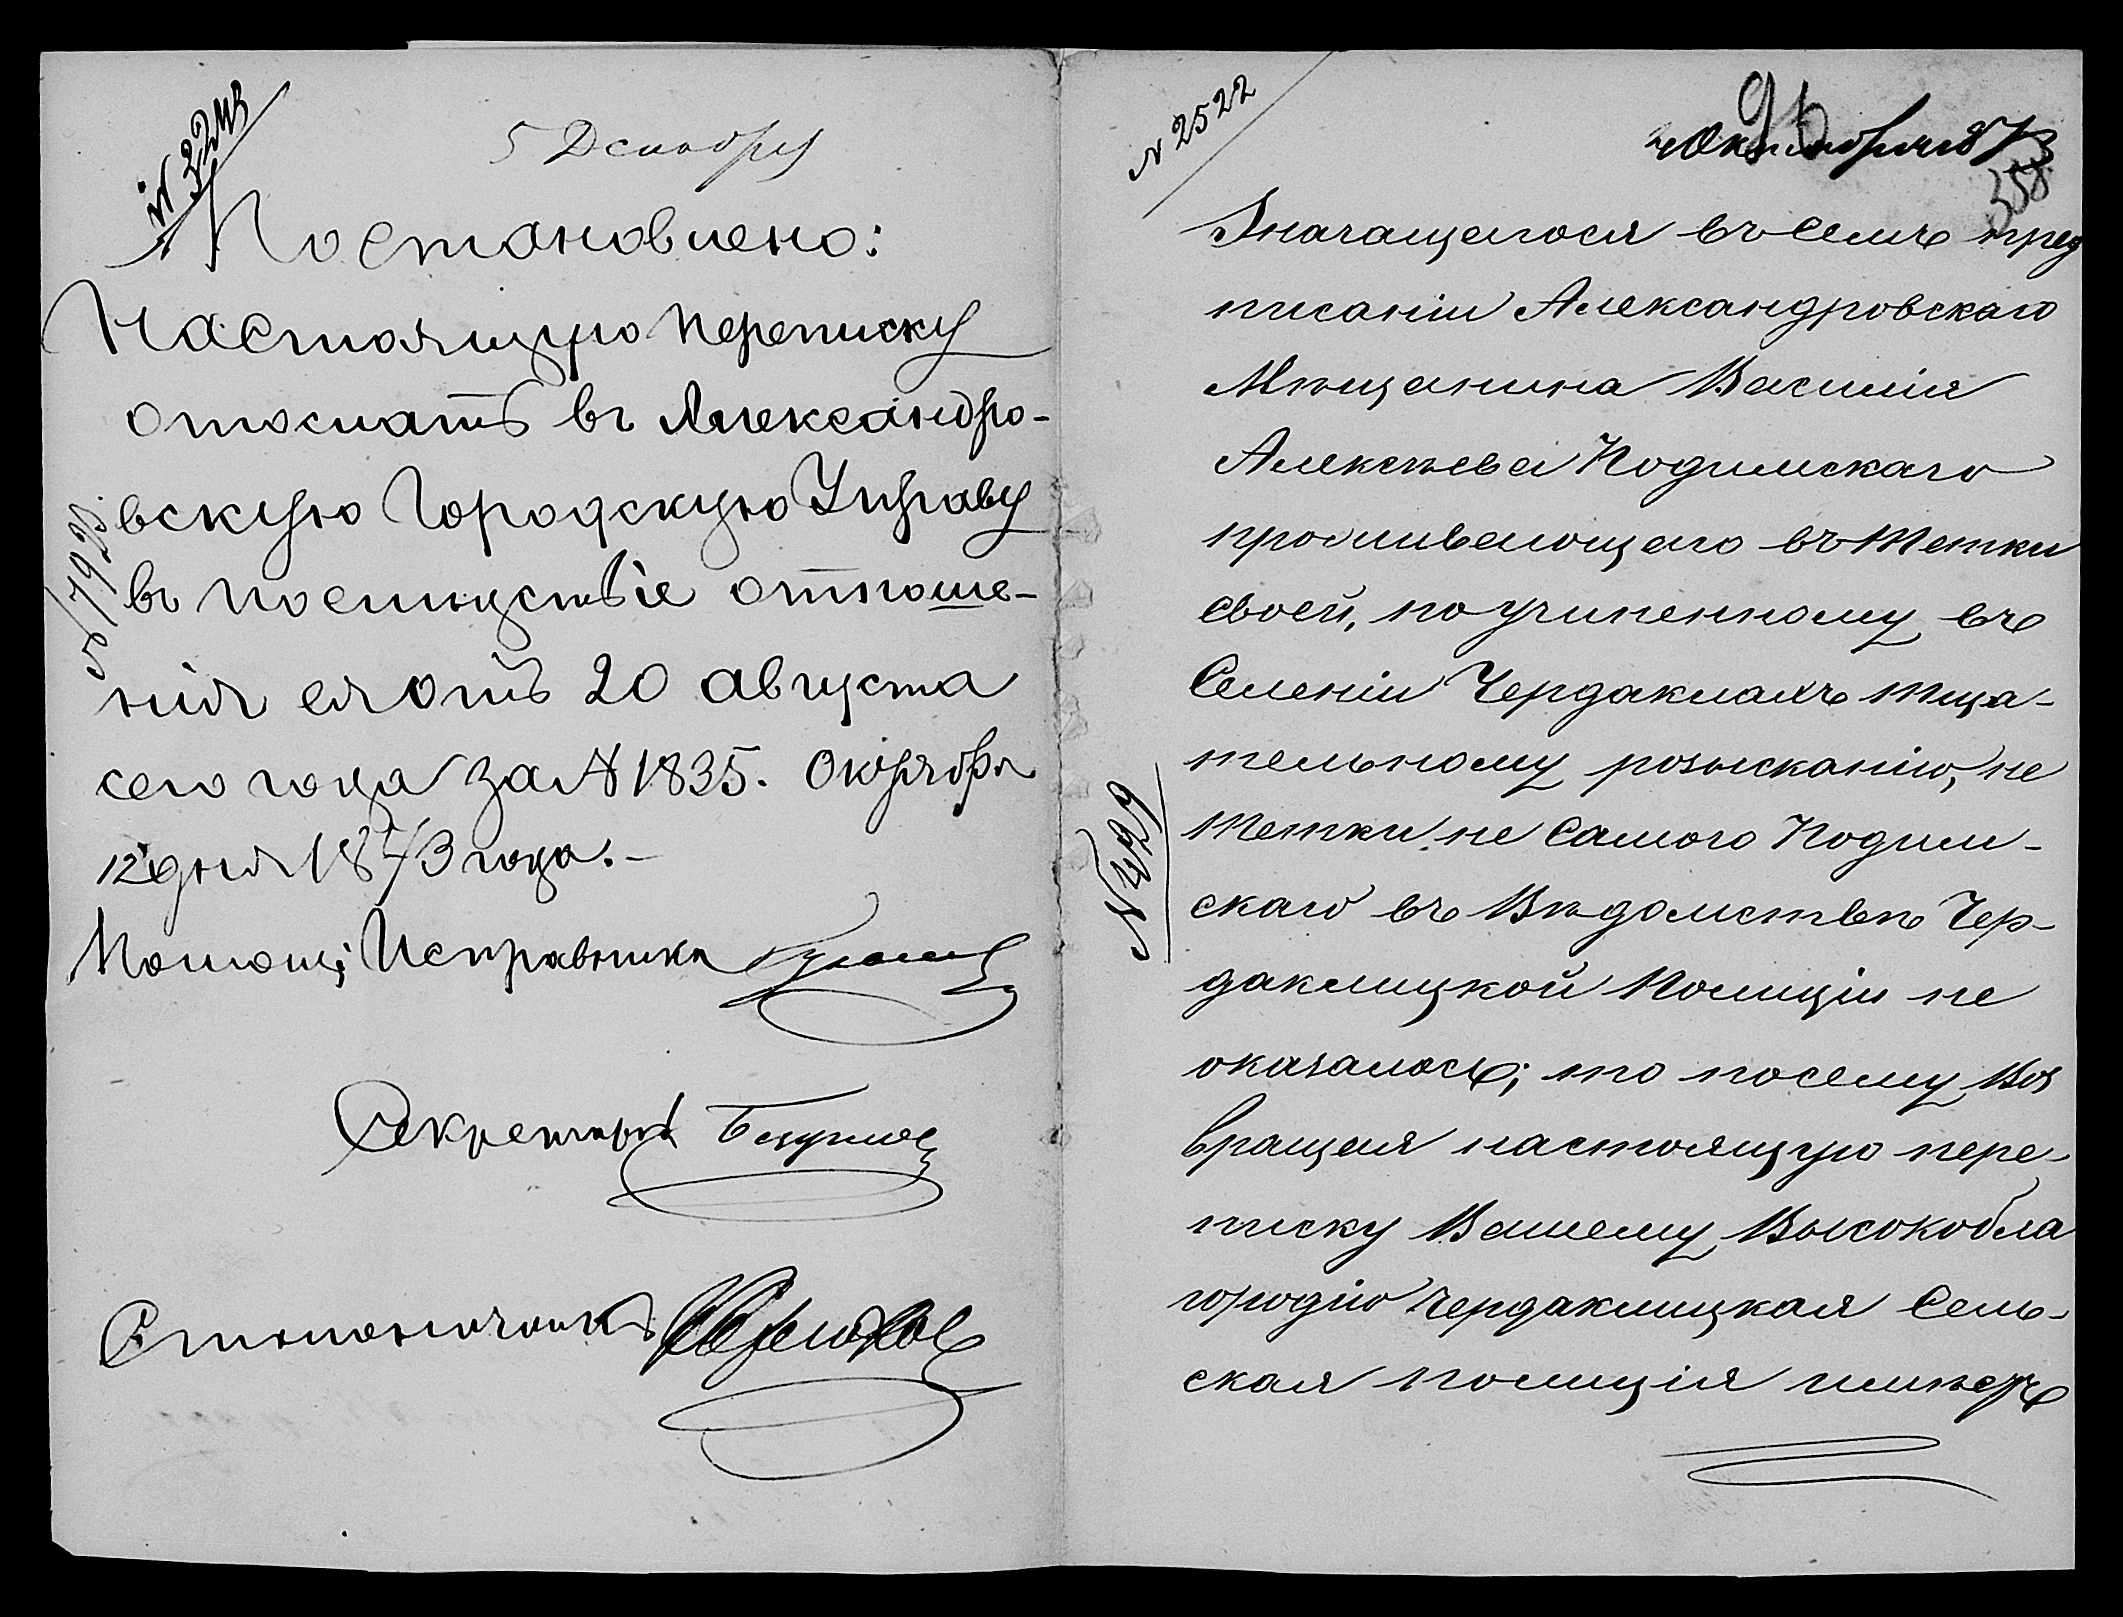 № 3243
5 Декабря
Постановлено:
Настоящую переписку
отослать въ Александро-
вскую Городскую Управу
въ послѣдствіе отноше-
нія ея отъ 20 августа
сего года за № 1835. Октября
12 дня 1873 года.-
Помощ: Исправника
Секретарь
Столоначальникъ
№ 2522
Октября 1873
95
358
Значащегося въ семъ пред
писаніи Александровскаго
Мѣщанина Василія
Алексѣева Подимскаго
проживающаго въ тетки
своей, по учиненному въ
Селеніи Чердаклахъ тща-
тельному розысканію, не
тетки не самого Подим-
скаго въ Вѣдомствѣ Чер-
даклицкой Полиціи не
оказалось; то посему воз
вращая настоящую пере-
писку Вашему Высокобла
городію Чердаклицкая Сель-
ская полиція имѣетъ